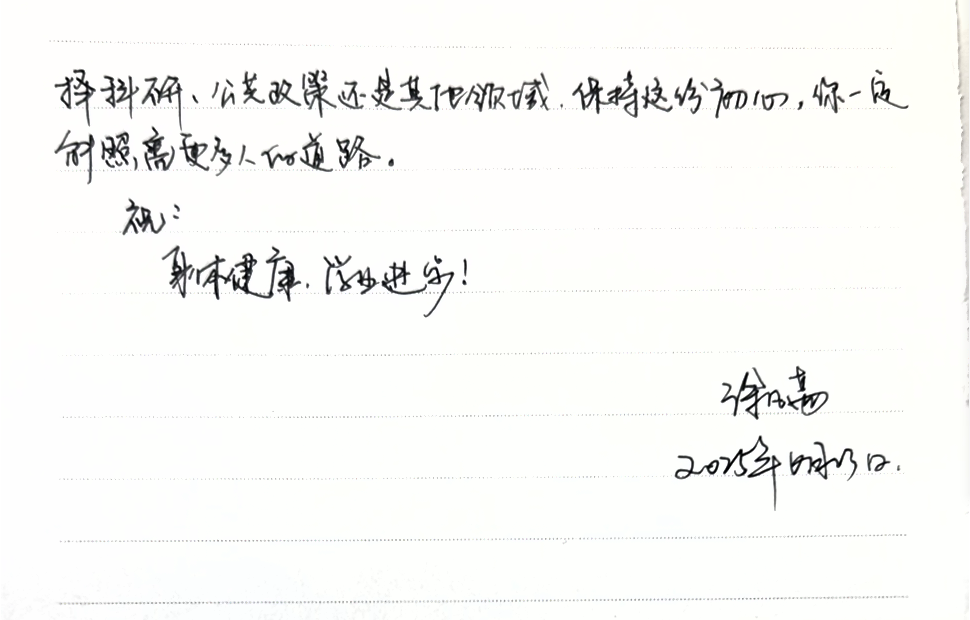 择科研、公共政策还是其他领域,保持这份初心,你一定
能照亮更多人的道路。
祝:
身体健康,学业进步!
徐
2025年 月 日.